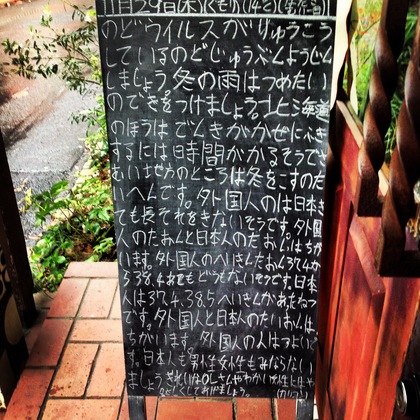 11月29日(木)くもり(14ど)
のどウイルスがりゅうこう
しているのどじゅうぶんようじん
しましょう。冬の雨はつめたい
のできをつけましょう。北海道
のほうはでんきがかぜにふき
するには時間がかかるそうです
さむい地方のところは冬をこすのたい
へんです。外国人のは日本き
ても長それをきないそうです。外国
人のたおんと日本人のたおんはちが
います。外国人のへいきんたおん37.4か
38.4あてもどうもないそうです。日本
人は37.4.38.5へいきんかあたねつ
です。外国人と日本人のたいおんは、
ちがいます。外国人の人はつよいで
す。日本人も男性女性もみならない
ましょう。きれいなOLさんやわかい女性と
してあげましょう。